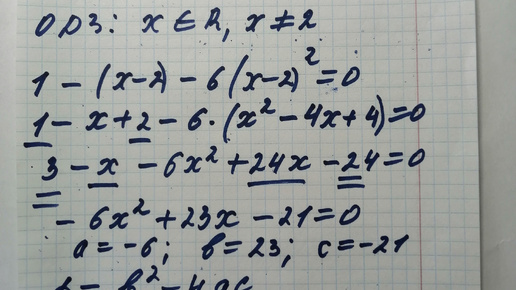 ОДЗ: x ∈ R, x ≠ 2
1 - (x-2) - 6(x-2)² = 0
1 - x + 2 - 6·(x² - 4x + 4) = 0
3 - x - 6x² + 24x - 24 = 0
- 6x² + 23x - 21 = 0
a = -6; b = 23; c = -21